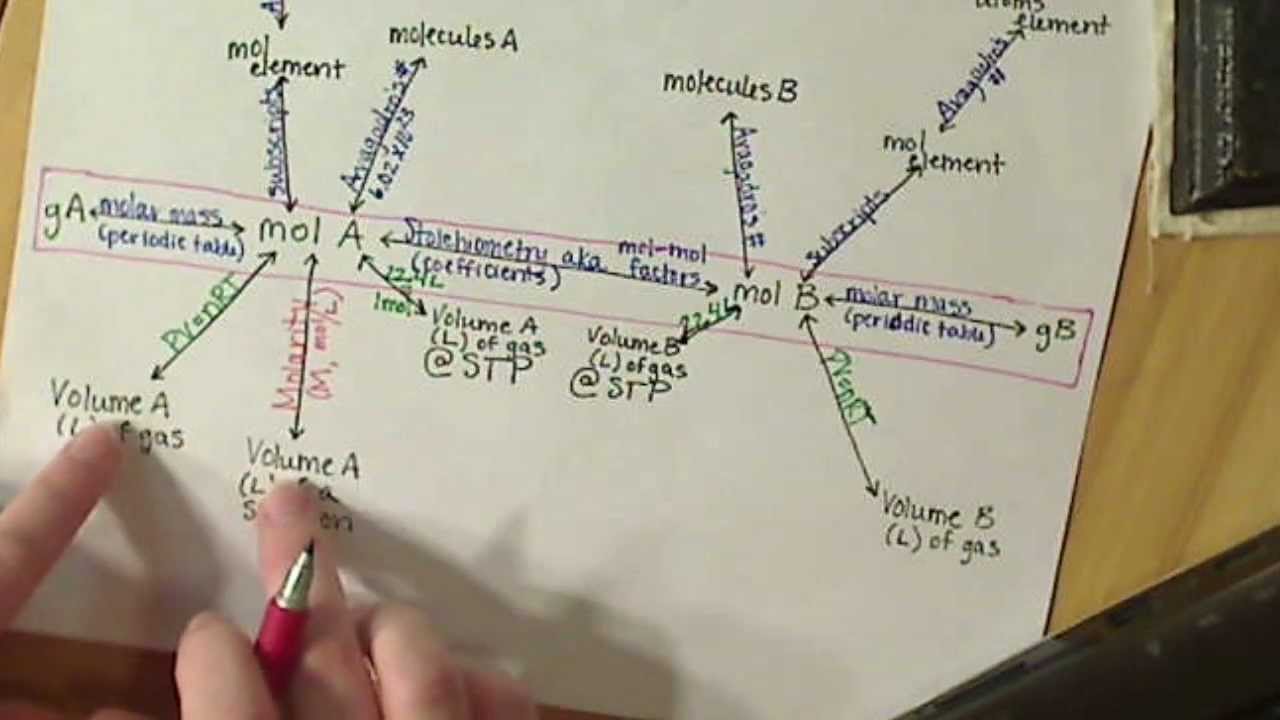 element
molecules A
mol
element
molecules B
mol
element
Avagadro's
#
Subscripts
Avagadro's #
6.02 x 10^23
Avagadro's #
Subscripts
gA
molar mass
(periodic table)
mol A
Stoichiometry aka mol-mol
(coefficients) factors
mol B
molar mass
(periodic table)
gB
PV=nRT
Molarity
(M, mol/L)
22.4L
1mol
Volume A
(L) of gas
@ STP
22.4L
Volume B
(L) of gas
@ STP
PV=nRT
Volume A
of gas
Volume A
Volume B
(L) of gas